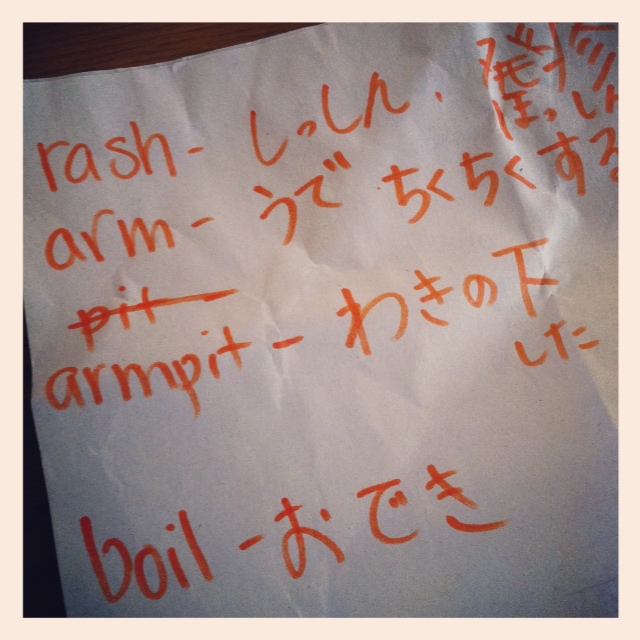 rash - しっしん.
ほっしん
arm - うで ちくちくする
pit
armpit - わきの下
した
boil - おでき